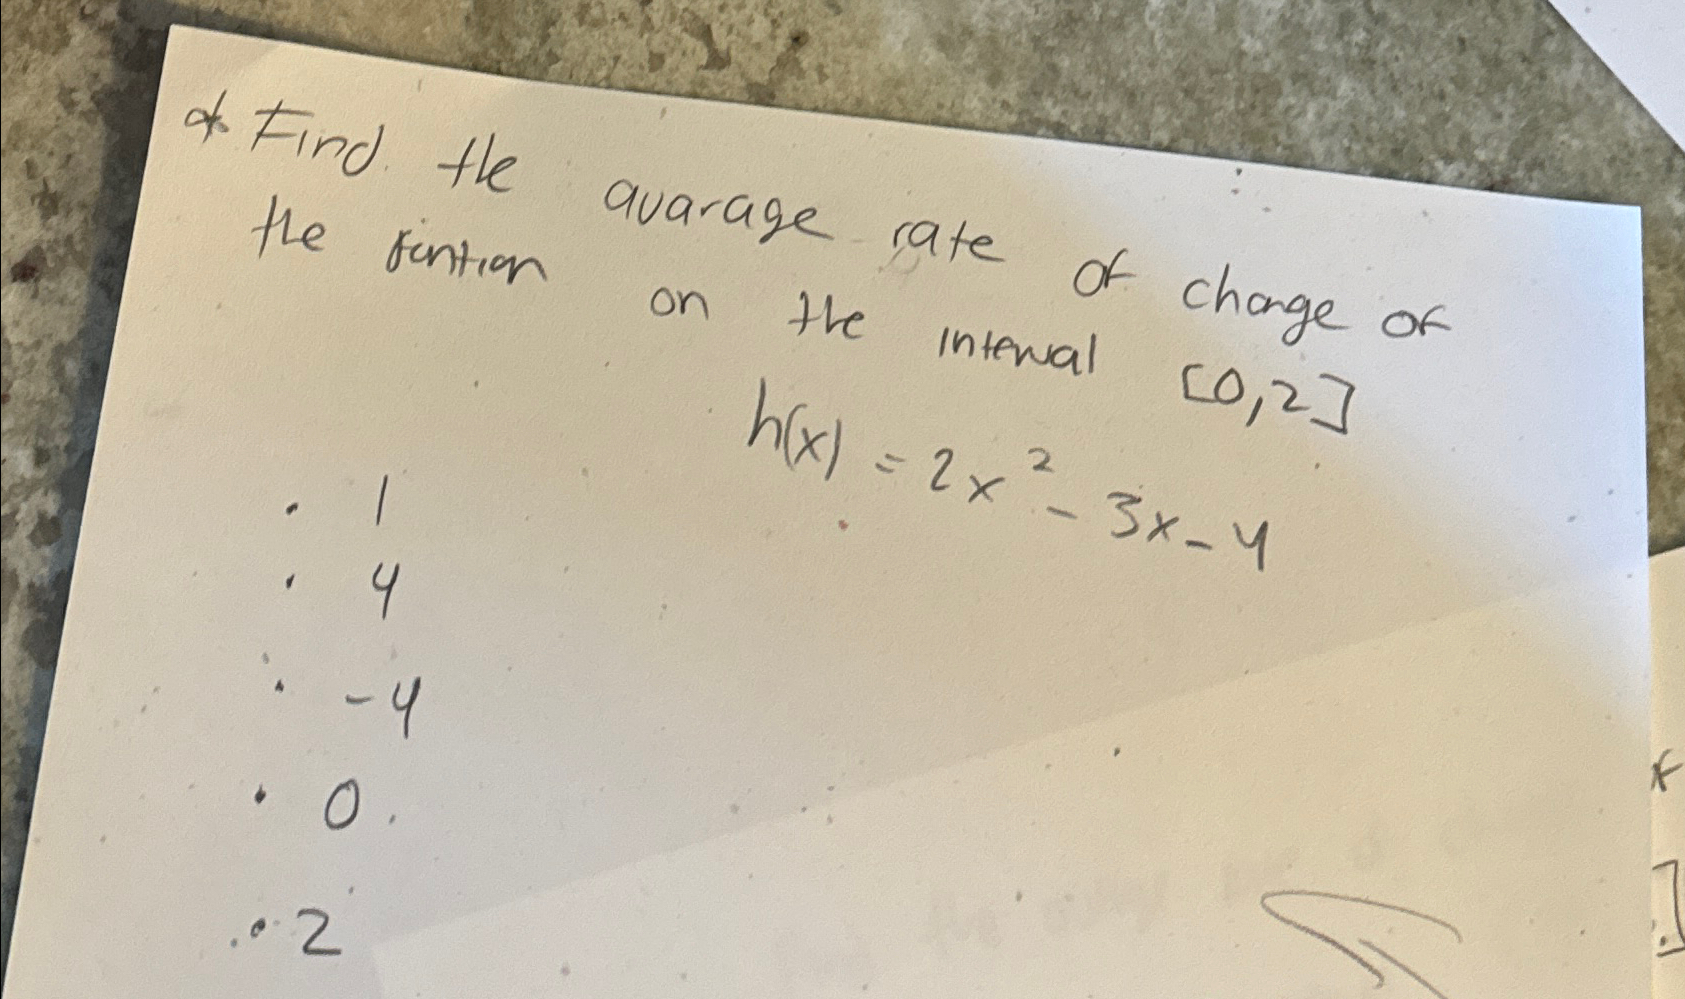 Find the avarage rate of change of
the funtion on the interval [0,2]
h(x) = 2x² - 3x - 4
· 1
· 4
· -4
· 0.
· 2